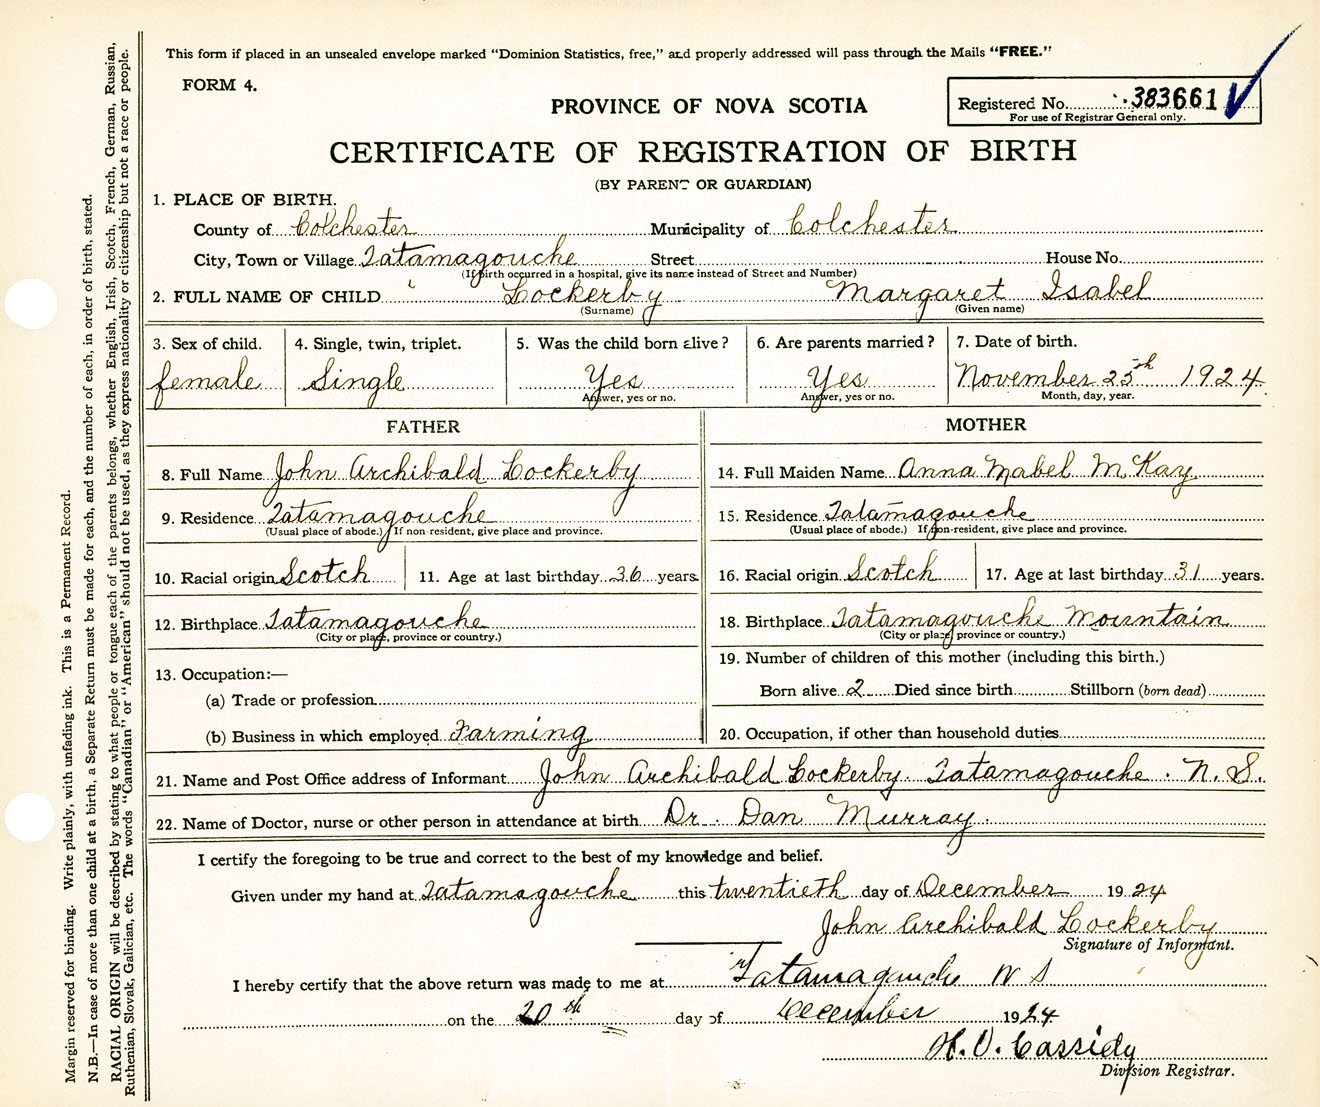 This form if placed in an unsealed envelope marked "Dominion Statistics, free," and properly addressed will pass through the Mails "FREE."
FORM 4.
PROVINCE OF NOVA SCOTIA
Registered No. 383661
For use of Registrar General only.
CERTIFICATE OF REGISTRATION OF BIRTH
(BY PARENT OR GUARDIAN)
1. PLACE OF BIRTH.
County of Colchester Municipality of Colchester
City, Town or Village Tatamagouche Street House No.
(If birth occurred in a hospital, give its name instead of Street and Number)
2. FULL NAME OF CHILD Lockerby Margaret Isabel
(Surname) (Given name)
3. Sex of child. 4. Single, twin, triplet. 5. Was the child born alive? 6. Are parents married? 7. Date of birth.
female Single Yes Yes November 25th 1924
Answer, yes or no. Answer, yes or no. Month, day, year.
FATHER MOTHER
8. Full Name John Archibald Lockerby
14. Full Maiden Name Anna Mabel McKay
9. Residence Tatamagouche
(Usual place of abode.) If non-resident, give place and province.
15. Residence Tatamagouche
(Usual place of abode.) If non-resident, give place and province.
10. Racial origin Scotch 11. Age at last birthday 36 years
16. Racial origin Scotch 17. Age at last birthday 31 years.
12. Birthplace Tatamagouche
(City or place, province or country.)
18. Birthplace Tatamagouche Mountain
(City or place, province or country.)
13. Occupation:—
(a) Trade or profession
(b) Business in which employed Farming
19. Number of children of this mother (including this birth.)
Born alive 2 Died since birth Stillborn (born dead)
20. Occupation, if other than household duties
21. Name and Post Office address of Informant John Archibald Lockerby. Tatamagouche. N. S.
22. Name of Doctor, nurse or other person in attendance at birth Dr. Dan Murray.
I certify the foregoing to be true and correct to the best of my knowledge and belief.
Given under my hand at Tatamagouche this twentieth day of December 1924
John Archibald Lockerby
Signature of Informant.
I hereby certify that the above return was made to me at Tatamagouche N S
on the 20th day of December 1924
H. V. Cassidy
Division Registrar.
Margin reserved for binding. Write plainly, with unfading ink. This is a Permanent Record.
N.B.—In case of more than one child at a birth, a Separate Return must be made for each, and the number of each, in order of birth, stated.
RACIAL ORIGIN will be described by stating to what people or tongue each of the parents belongs, whether English, Irish, Scotch, French, German, Russian,
Ruthenian, Slovak, Galician, etc. The words "Canadian" or "American" should not be used, as they express nationality or citizenship but not a race or people.